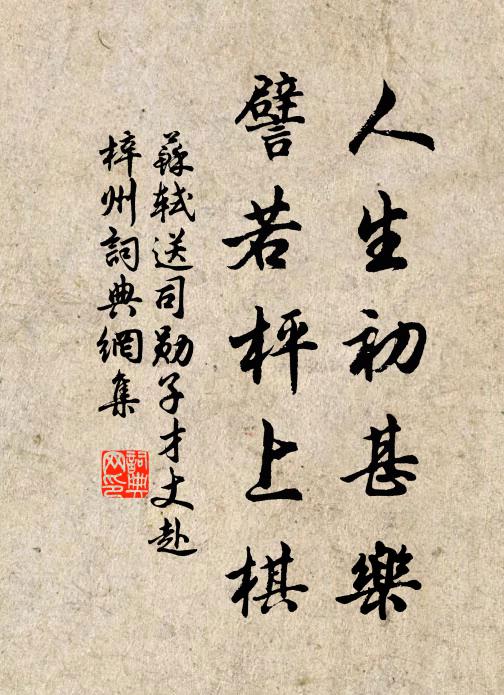 人生初甚樂
譬若枰上棋
蘇軾送司勛子才丈赴
梓州詞典網集
詞典
网印